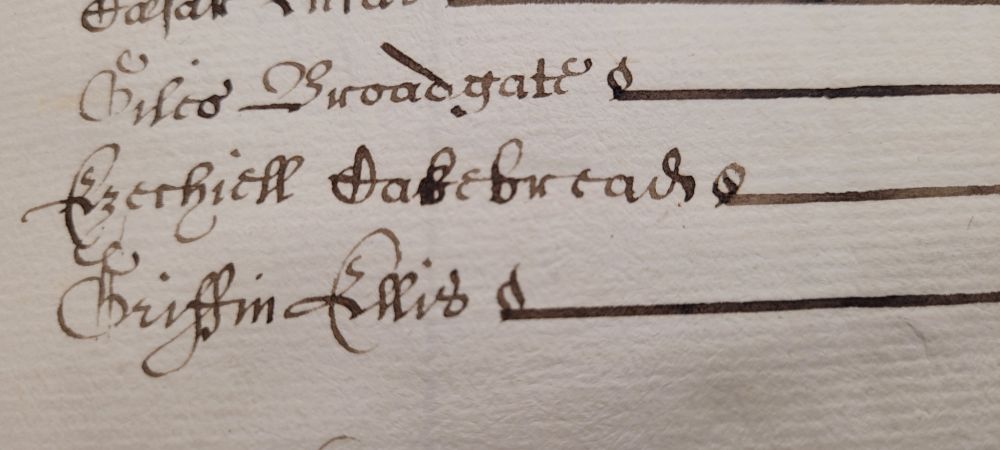 Cæsar
Giles Broadgate
Ezechiell Cakebread
Griffin Ellis